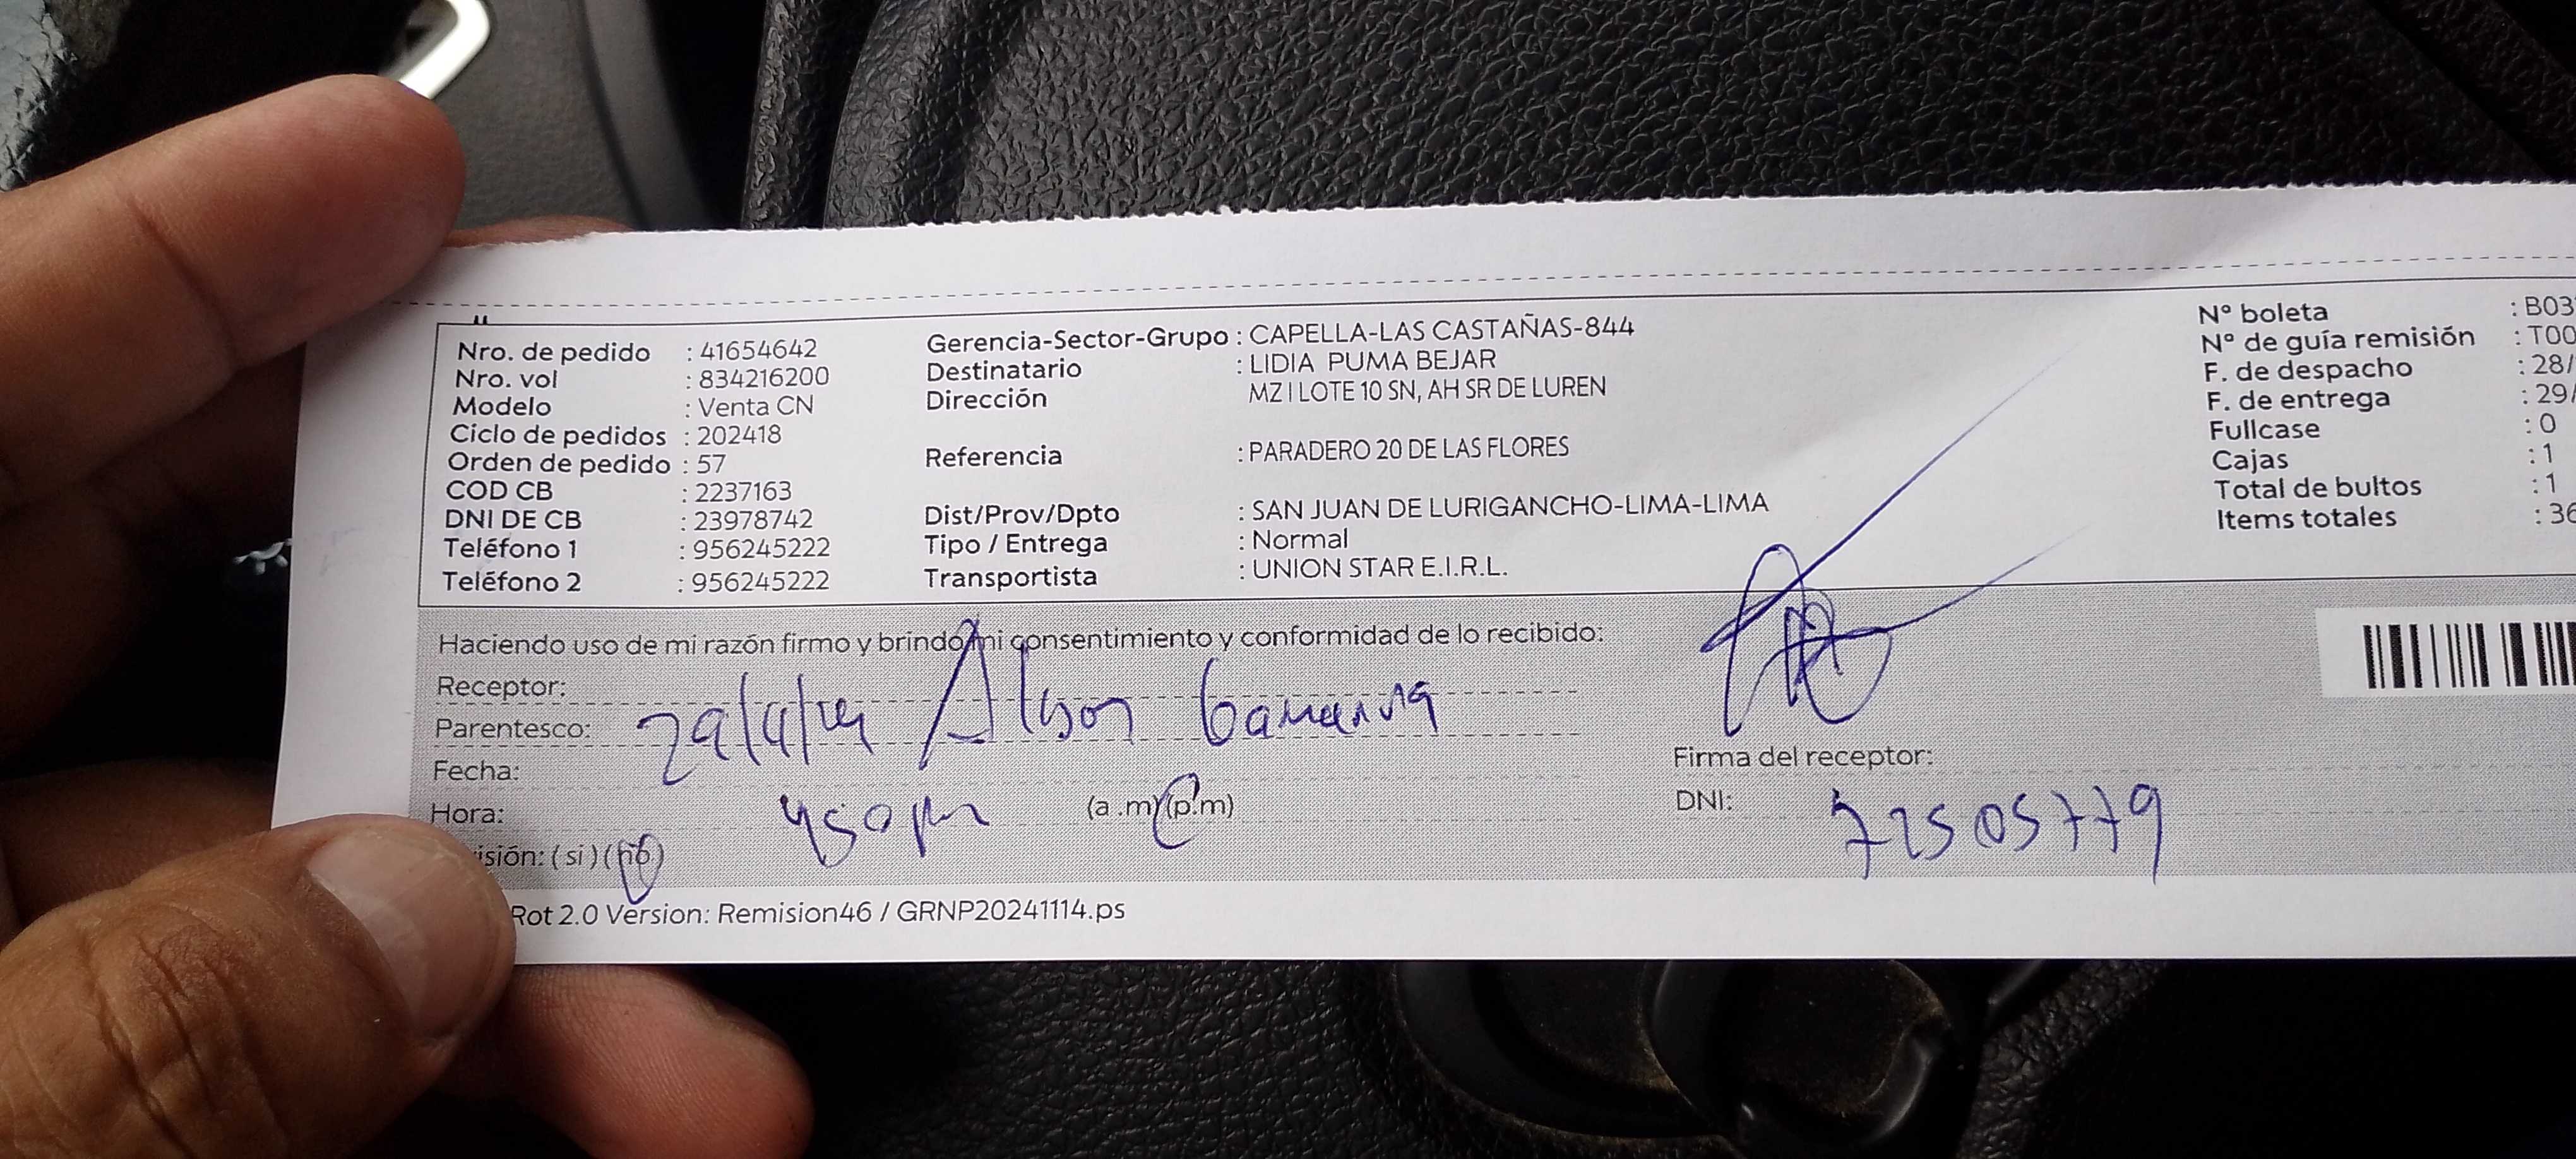 Nro. de pedido : 41654642
Nro. vol : 834216200
Modelo : Venta CN
Ciclo de pedidos : 202418
Orden de pedido : 57
COD CB : 2237163
DNI DE CB : 23978742
Teléfono 1 : 956245222
Teléfono 2 : 956245222
Gerencia-Sector-Grupo : CAPELLA-LAS CASTAÑAS-844
Destinatario : LIDIA PUMA BEJAR
Dirección MZ I LOTE 10 SN, AH SR DE LUREN
Referencia : PARADERO 20 DE LAS FLORES
Dist/Prov/Dpto : SAN JUAN DE LURIGANCHO-LIMA-LIMA
Tipo / Entrega : Normal
Transportista : UNION STAR E.I.R.L.
N° boleta : B03
N° de guía remisión : T00
F. de despacho : 28/
F. de entrega : 29/
Fullcase : 0
Cajas : 1
Total de bultos : 1
Items totales : 36
Haciendo uso de mi razón firmo y brindo mi consentimiento y conformidad de lo recibido:
Receptor:
Parentesco:
Fecha:
Hora: 450 pm (a .m) (p.m)
isión: ( si ) ( no )
Firma del receptor:
DNI: 72505779
Rot 2.0 Version: Remision46 / GRNP20241114.ps